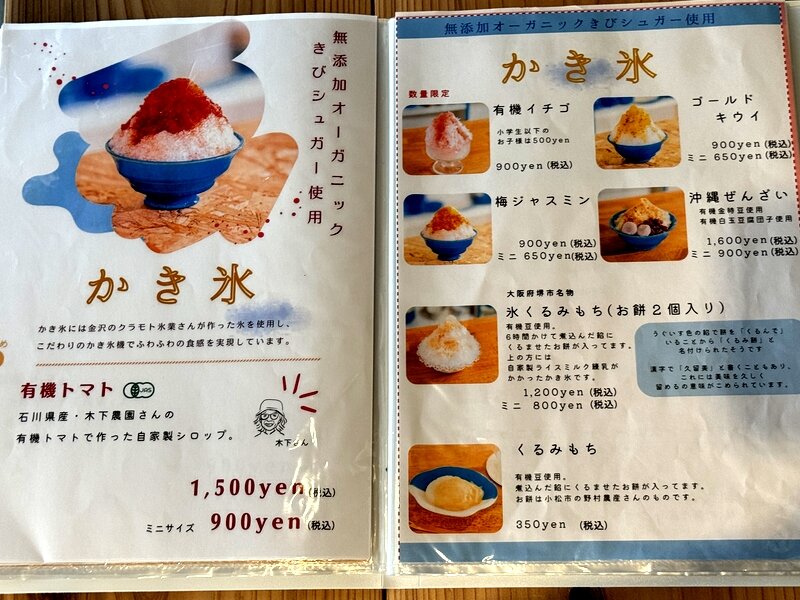 無添加オーガニック
きびシュガー使用
かき氷
かき氷には金沢のクラモト氷業さんが作った氷を使用し、
こだわりのかき氷機でふわふわの食感を実現しています。
有機トマト
JAS
石川県産・木下農園さんの
有機トマトで作った自家製シロップ。
木下さん
1,500yen(税込)
ミニサイズ 900yen(税込)
無添加オーガニックきびシュガー使用
かき氷
数量限定
有機イチゴ
小学生以下の
お子様は500yen
900yen(税込)
ゴールド
キウイ
900yen(税込)
ミニ 650yen(税込)
梅ジャスミン
900yen(税込)
ミニ 650yen(税込)
沖縄ぜんざい
有機金時豆使用
有機白玉豆腐団子使用
1,600yen(税込)
ミニ 900yen(税込)
大阪府堺市名物
氷くるみもち(お餅2個入り)
有機豆使用。
6時間かけて煮込んだ餡に
くるませたお餅が入ってます。
上の方には
自家製ライスミルク練乳が
かかったかき氷です。
1,200yen(税込)
ミニ 800yen(税込)
うぐいす色の餡で餅を「くるんで」
いることから「くるみ餅」と
名付けられたそうです
漢字で「久留美」と書くこともあり、
これには美味を久しく
留めるの意味がこめられています。
くるみもち
有機豆使用。
煮込んだ餡にくるませたお餅が入ってます。
お餅は小松市の野村農産さんのものです。
350yen (税込)